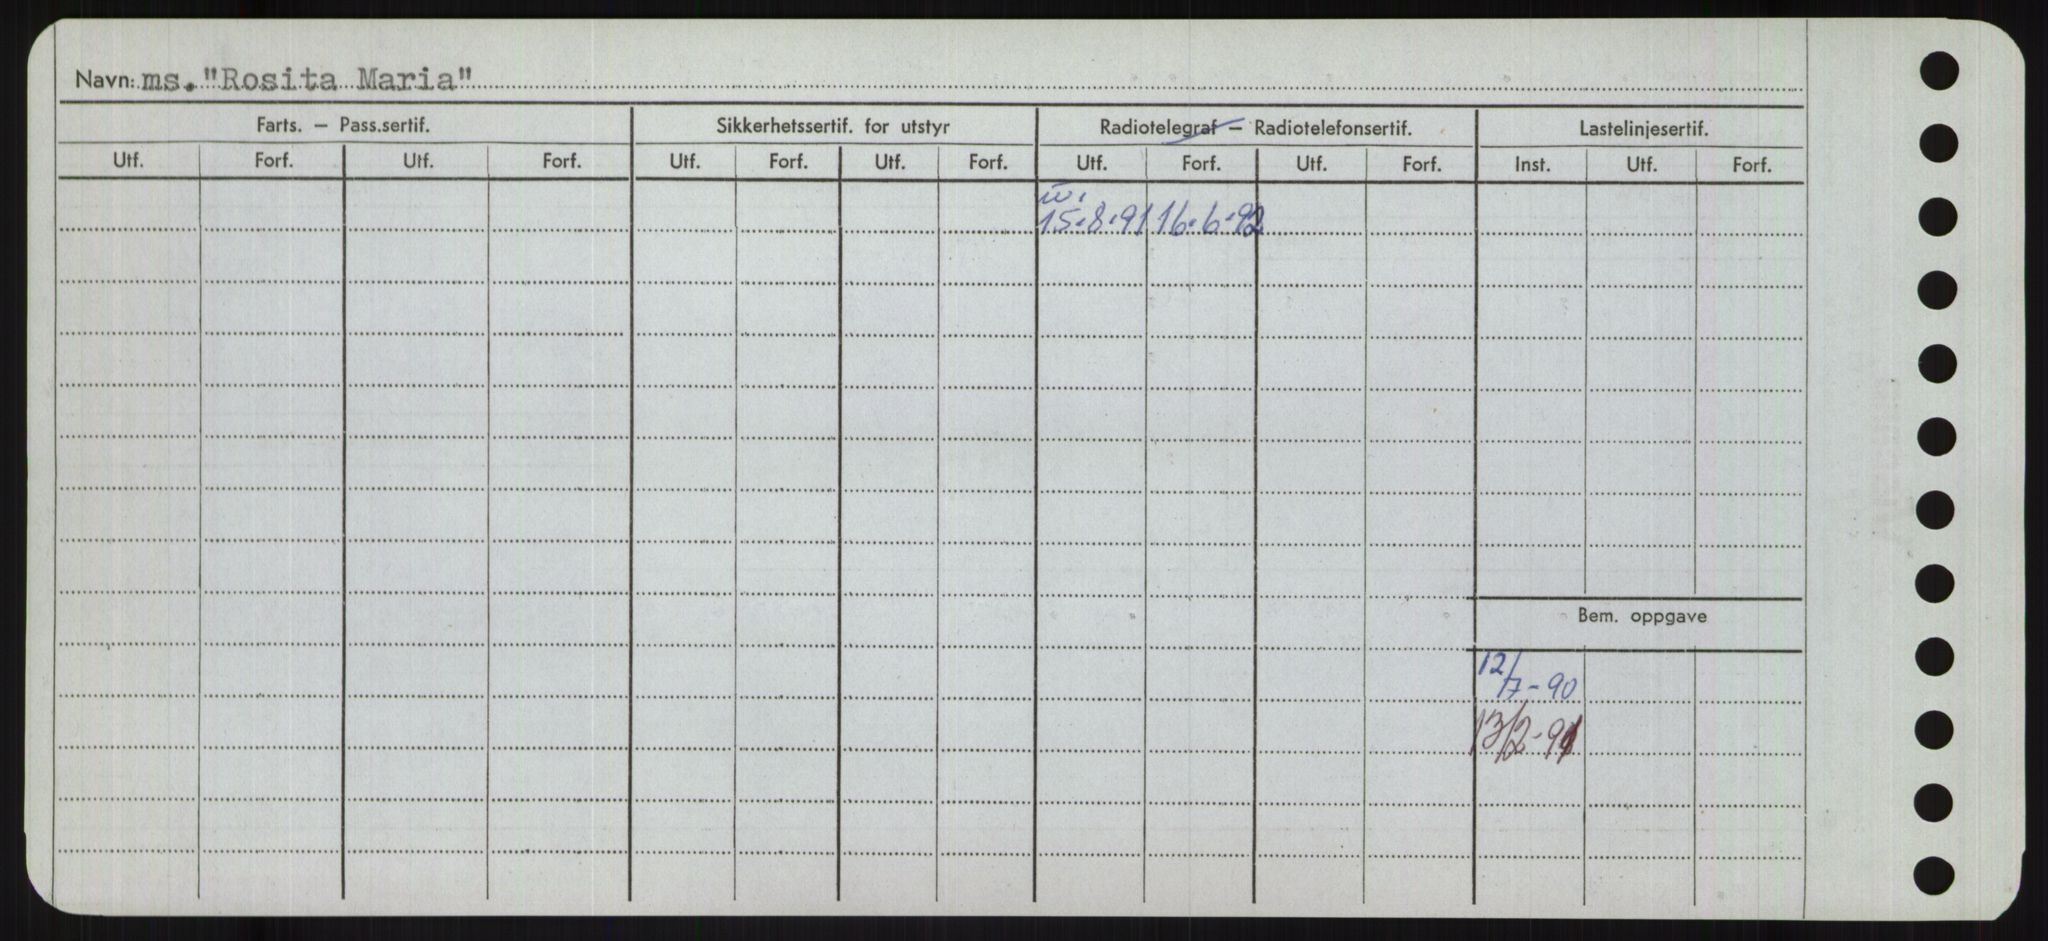 Navn: ms. "Rosita Maria"
Farts. — Pass.sertif. Sikkerhetssertif. for utstyr Radiotelegraf — Radiotelefonsertif. Lastelinjesertif.
Utf. Forf. Utf. Forf. Utf. Forf. Utf. Forf. Utf. Forf. Utf. Forf. Inst. Utf. Forf.
15.8.91 16.6.92
Bem. oppgave
12/7-90
13/2-91